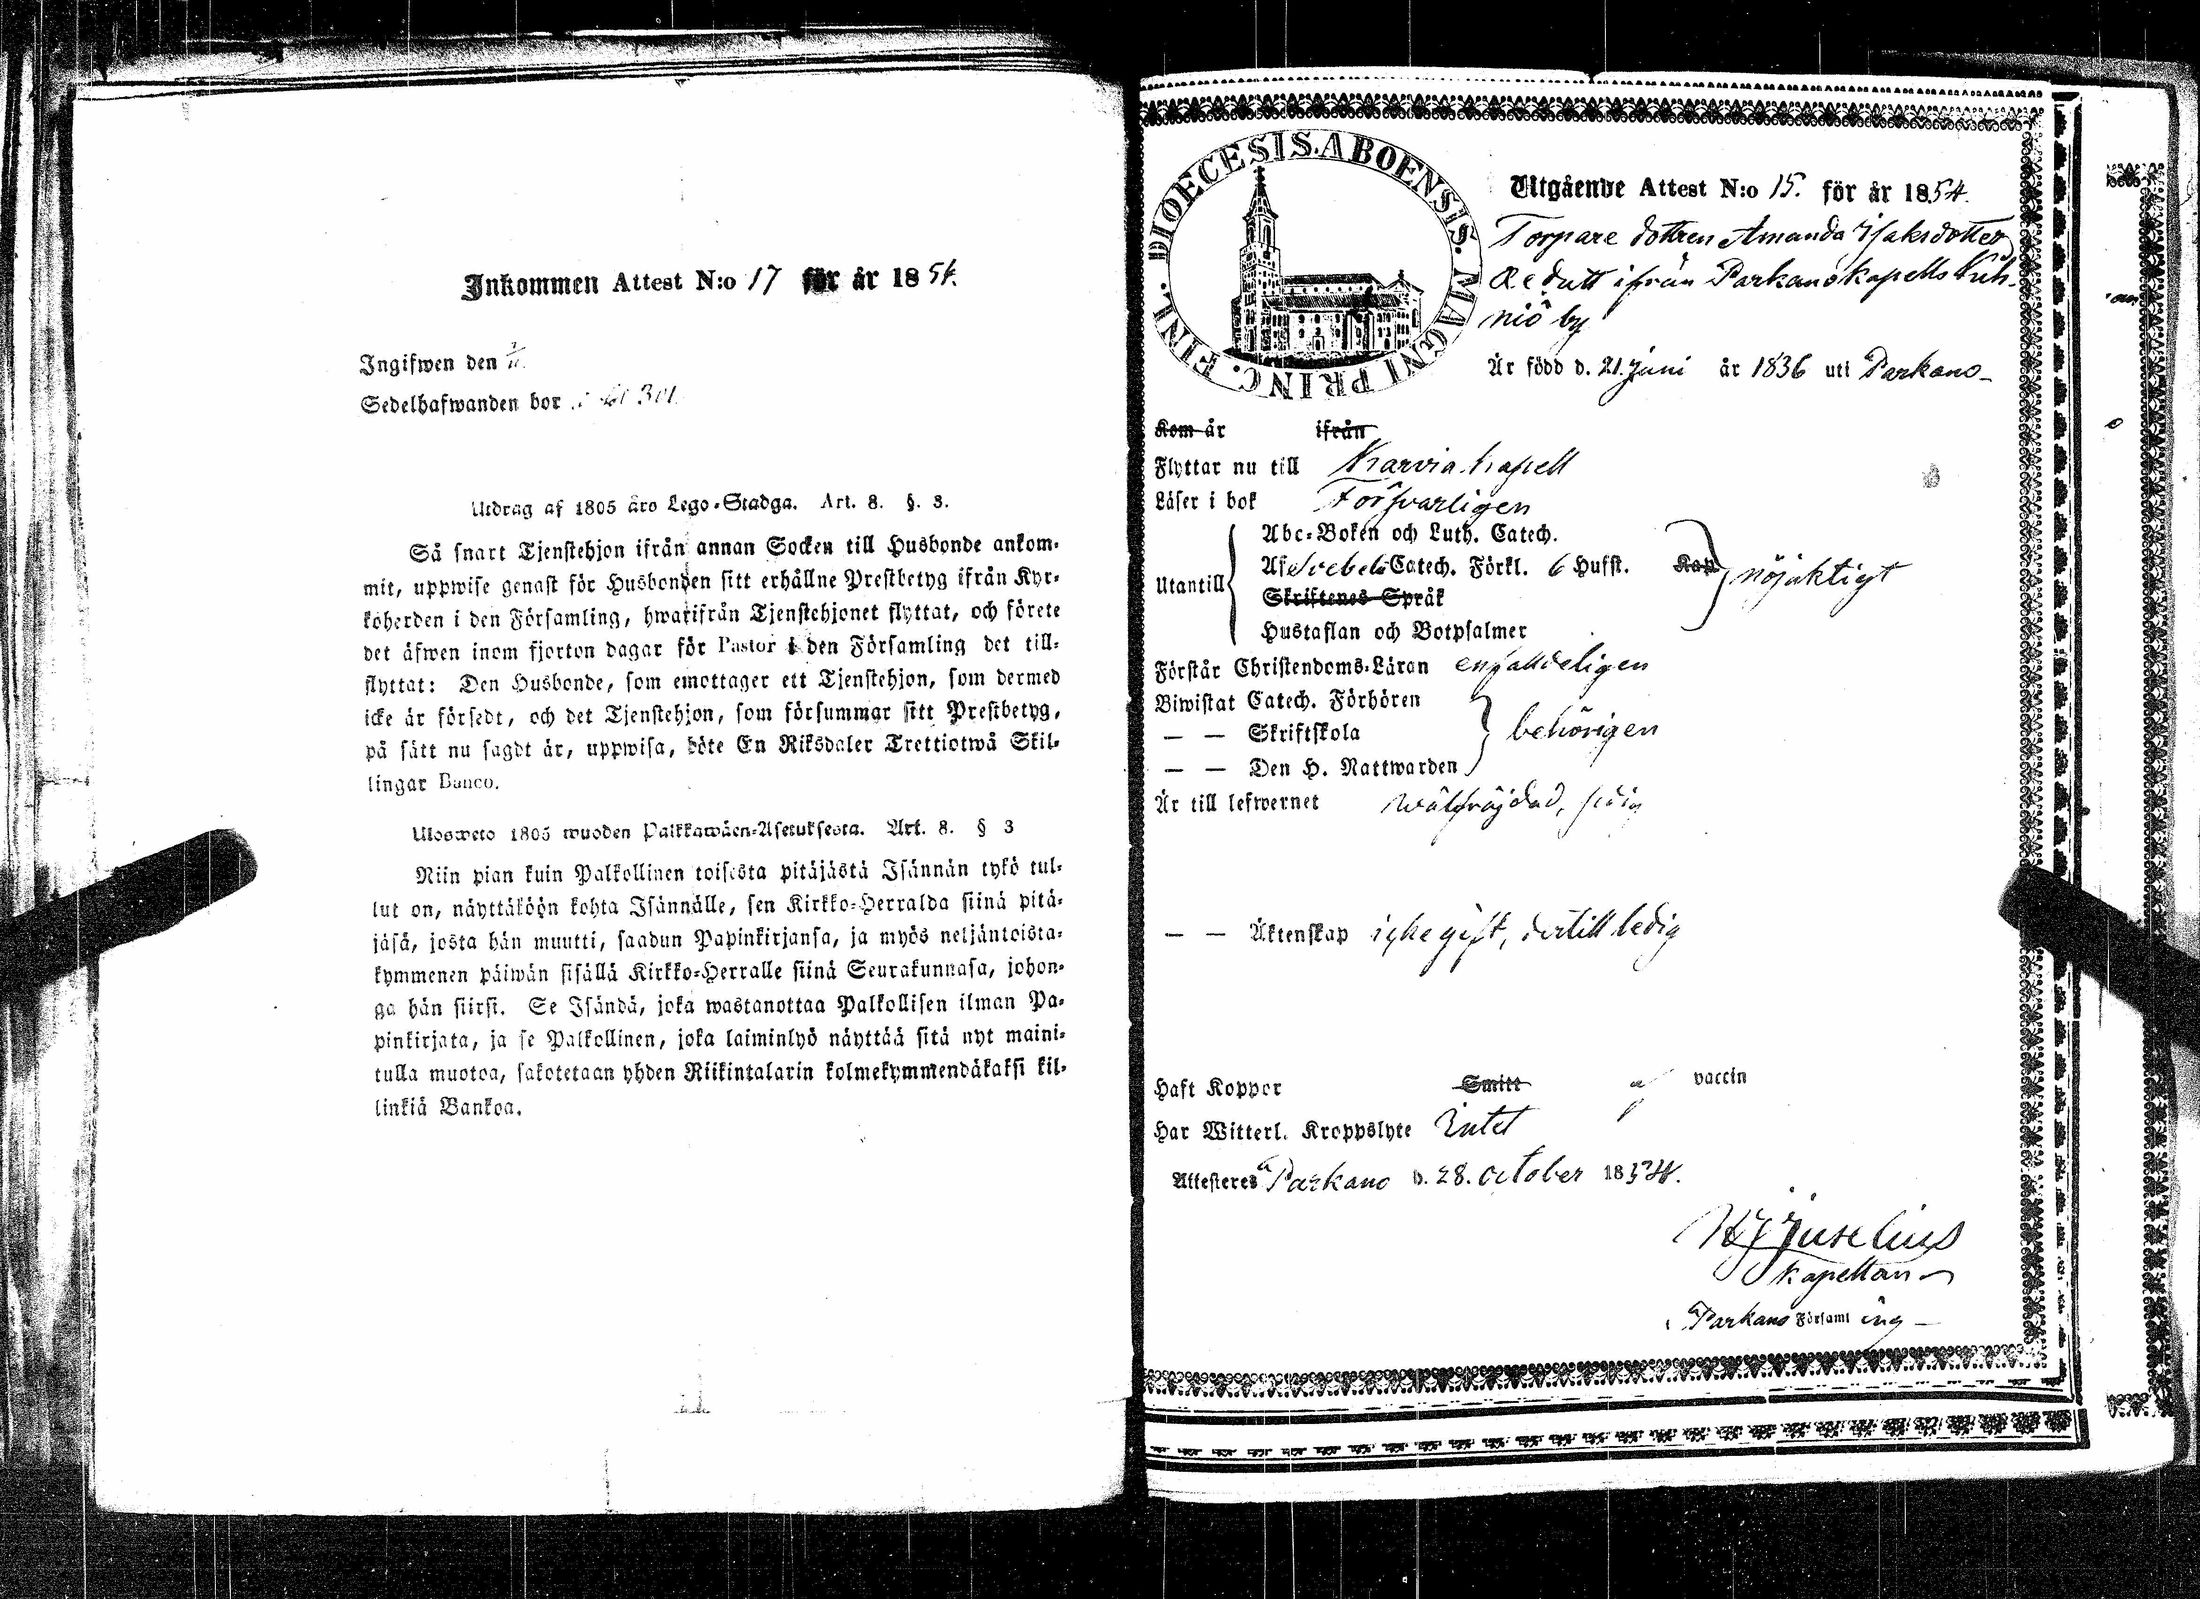 Inkommen Attest N:o 17 för år 1854.
Ingifwen den
Sedelhafwanden bor 301.
Utdrag af 1805 års Lego-Stadga. Art. 8. §. 3.
Så snart Tjenstehjon ifrån annan Socken till Husbonde ankom-
mit, uppwise genast för Husbonden sitt erhållne Prestbetyg ifrån Kyr-
koherden i den Församling, hwarifrån Tjenstehjonet flyttat, och förete
det äfwen inom fjorton dagar för Pastor i den Församling det till-
flyttat: Den Husbonde, som emottager ett Tjenstehjon, som dermed
icke är försedt, och det Tjenstehjon, som försummar sitt Prestbetyg,
på sätt nu sagdt är, uppwisa, böte En Riksdaler Trettiotwå Skil-
lingar Banco.
Ulosweto 1805 wuoden Palkkawäen-Asetuksesta. Art. 8. § 3
Niin pian kuin Palkollinen toisesta pitäjästä Isännän tykö tul-
lut on, näyttäköön kohta Isännälle, sen Kirkko-Herralda siinä pitä-
jäsä, josta hän muutti, saadun Papinkirjansa, ja myös neljäntoista-
kymmenen päiwän sisällä Kirkko-Herralle siinä Seurakunnasa, johon-
ga hän siirsi. Se Isändä, joka wastanottaa Palkollisen ilman Pa-
pinkirjata, ja se Palkollinen, joka laiminlyö näyttää sitä nyt maini-
tulla muotoa, sakotetaan yhden Riikintalarin kolmekymmendäkaksi kil-
linkiä Bankoa.
DIOECESIS ABOENSIS. MAGNI PRINC. FINL.
Utgående Attest N:o 15. för år 1854.
Torpare dottren Amanda Isaksdotter
Redutt ifrån Parkano kapells Kih-
niö by
Är född d. 21. Juni år 1836 uti Parkano
Kom år ifrån
Flyttar nu till Karvia kapell
Läser i bok Försvarligen
Abc-Boken och Luth. Catech.
Utantill Af Svebels Catech. Förkl. 6 Hufst. Kap nöjaktigt
Skriftenes Språk
Hustaflan och Botpsalmer
Förstår Christendoms-Läran enfaldeligen
Biwistat Catech. Förhören
— — Skriftskola behörigen
— — Den H. Nattwarden
Är till lefwernet wälfräjdad,
— — Äktenskap icke gift, dertill ledig
Haft Koppor Smitt af vaccin
Har Witterl. Kroppslyte Intet
Attesteres Parkano d. 28. October 1854.
Juselius
Kapellan
i Parkano Församl ing